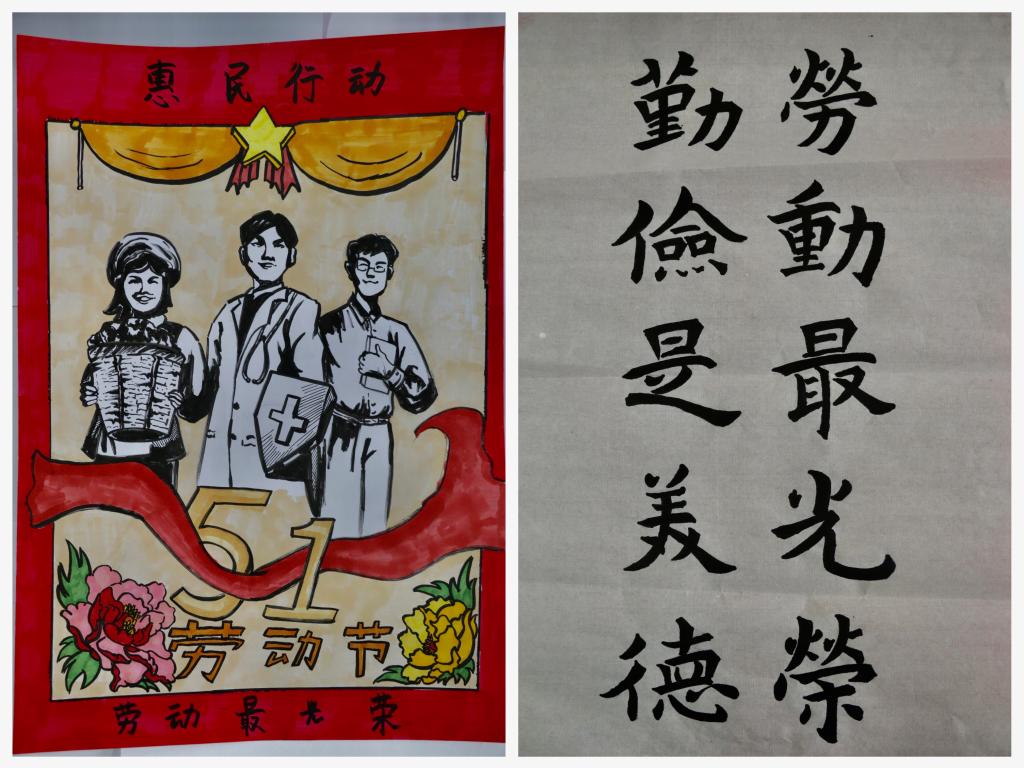 惠民行动
51
劳动节
劳动最光荣
勞動最光榮
勤儉是美德